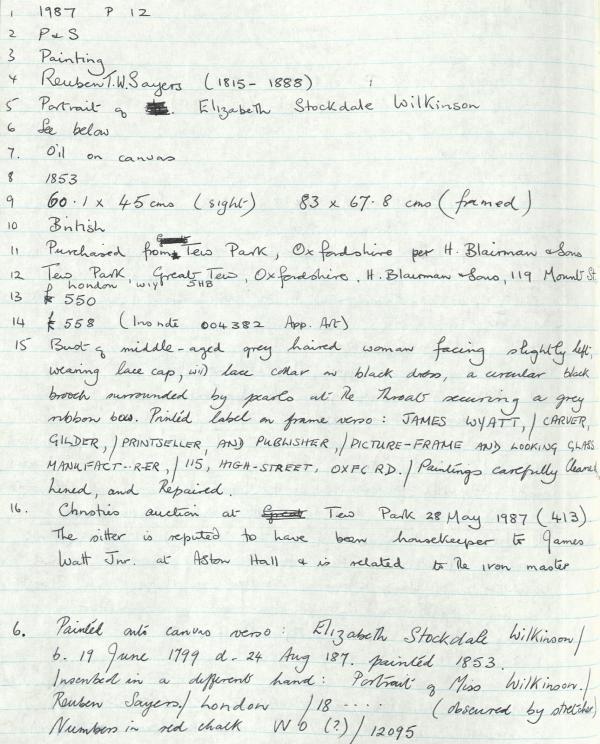 1 1987 P 12
2 P & S
3 Painting
4 Reuben T.W. Sayers (1815 - 1888)
5 Portrait of Elizabeth Stockdale Wilkinson
6 See below
7. Oil on canvas
8 1853
9 60.1 x 45 cms (sight) 83 x 67.8 cms (framed)
10 British
11 Purchased from Tew Park, Oxfordshire per H. Blairman & Sons
12 Tew Park, Great Tew, Oxfordshire. H. Blairman & Sons, 119 Mount St.
London W1Y 5HB
13 £ 550
14 £ 558 (Inv note 004382 App. Art)
15 Bust of middle-aged grey haired woman facing slightly left,
wearing lace cap, with lace collar on black dress, a circular black
brooch surrounded by pearls at the throat securing a grey
ribbon bow. Printed label on frame verso: JAMES WYATT, / CARVER,
GILDER, / PRINTSELLER, AND PUBLISHER, / PICTURE-FRAME AND LOOKING GLASS
MANUFACT-R-ER, / 115, HIGH-STREET, OXFO RD. / Paintings carefully Cleaned,
Lined, and Repaired.
16. Christies auction at Tew Park 28 May 1987 (413).
The sitter is reputed to have been housekeeper to James
Watt Jnr. at Aston Hall & is related to the iron master
6. Painted onto canvas verso: Elizabeth Stockdale Wilkinson /
b. 19 June 1799 d. 24 Aug 187. painted 1853.
Inscribed in a different hand: Portrait of Miss Wilkinson. /
Reuben Sayers / London / 18 .... (obscured by stretcher)
Numbers in red chalk W O (?) / 12095